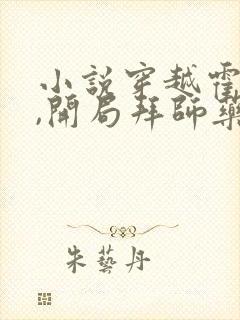 小說穿越霍
,開局拜師藥
朱藝丹